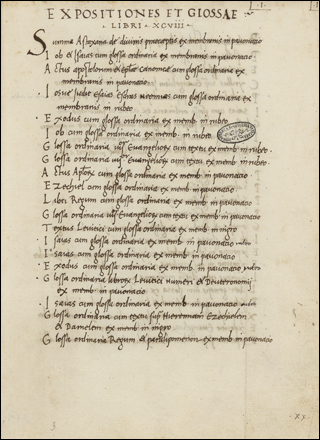 EXPOSITIONES ET GLOSSAE
LIBRI XCVIII
Summa de divinis praeceptis ex membranis in pavonacio
Iob et Isaias cum glossa ordinaria ex membranis in pavonacio
Actus apostolorum et canonicae cum glossa ordinaria ex
membranis in pavonacio
Iosue Iudices Esaias Esdras Neemias cum glossa ordinaria ex
membranis in rubeo
Exodus cum glossa ordinaria ex memb. in rubeo
Iob cum glossa ordinaria ex memb. in rubeo
Glossa ordinaria Evangelior. cum textu ex memb. in rubeo
Glossa ordinaria Evangelior. cum textu ex memb. in rubeo
Actus cum glossa ordinaria ex memb. in pavonacio
Ezechiel cum glossa ordinaria ex memb. in pavonacio
Libri Regum cum glossa ordinaria ex memb. in pavonacio
Glossa ordinaria Evangelior. cum textu ex memb. in pavonacio
Textus Levitici cum glossa ex memb. in nigro
Isaias cum glossa ordinaria ex memb. in pavonacio
Isaias cum glossa ordinaria ex memb. in pavonacio
Exodus cum glossa ordinaria ex memb. in pavonacio
Glossa ordinaria libror. Levitici Numeri et Deuteronomij
ex memb. in pavonacio
Isaias cum glossa ordinaria ex memb. in pavonacio
Glossa ordinaria cum textu sup. Hieremiam Ezechielem
et Danielem ex memb. in nigro
Glossa ordinaria Regum et paralipomenon ex memb. in pavonacio